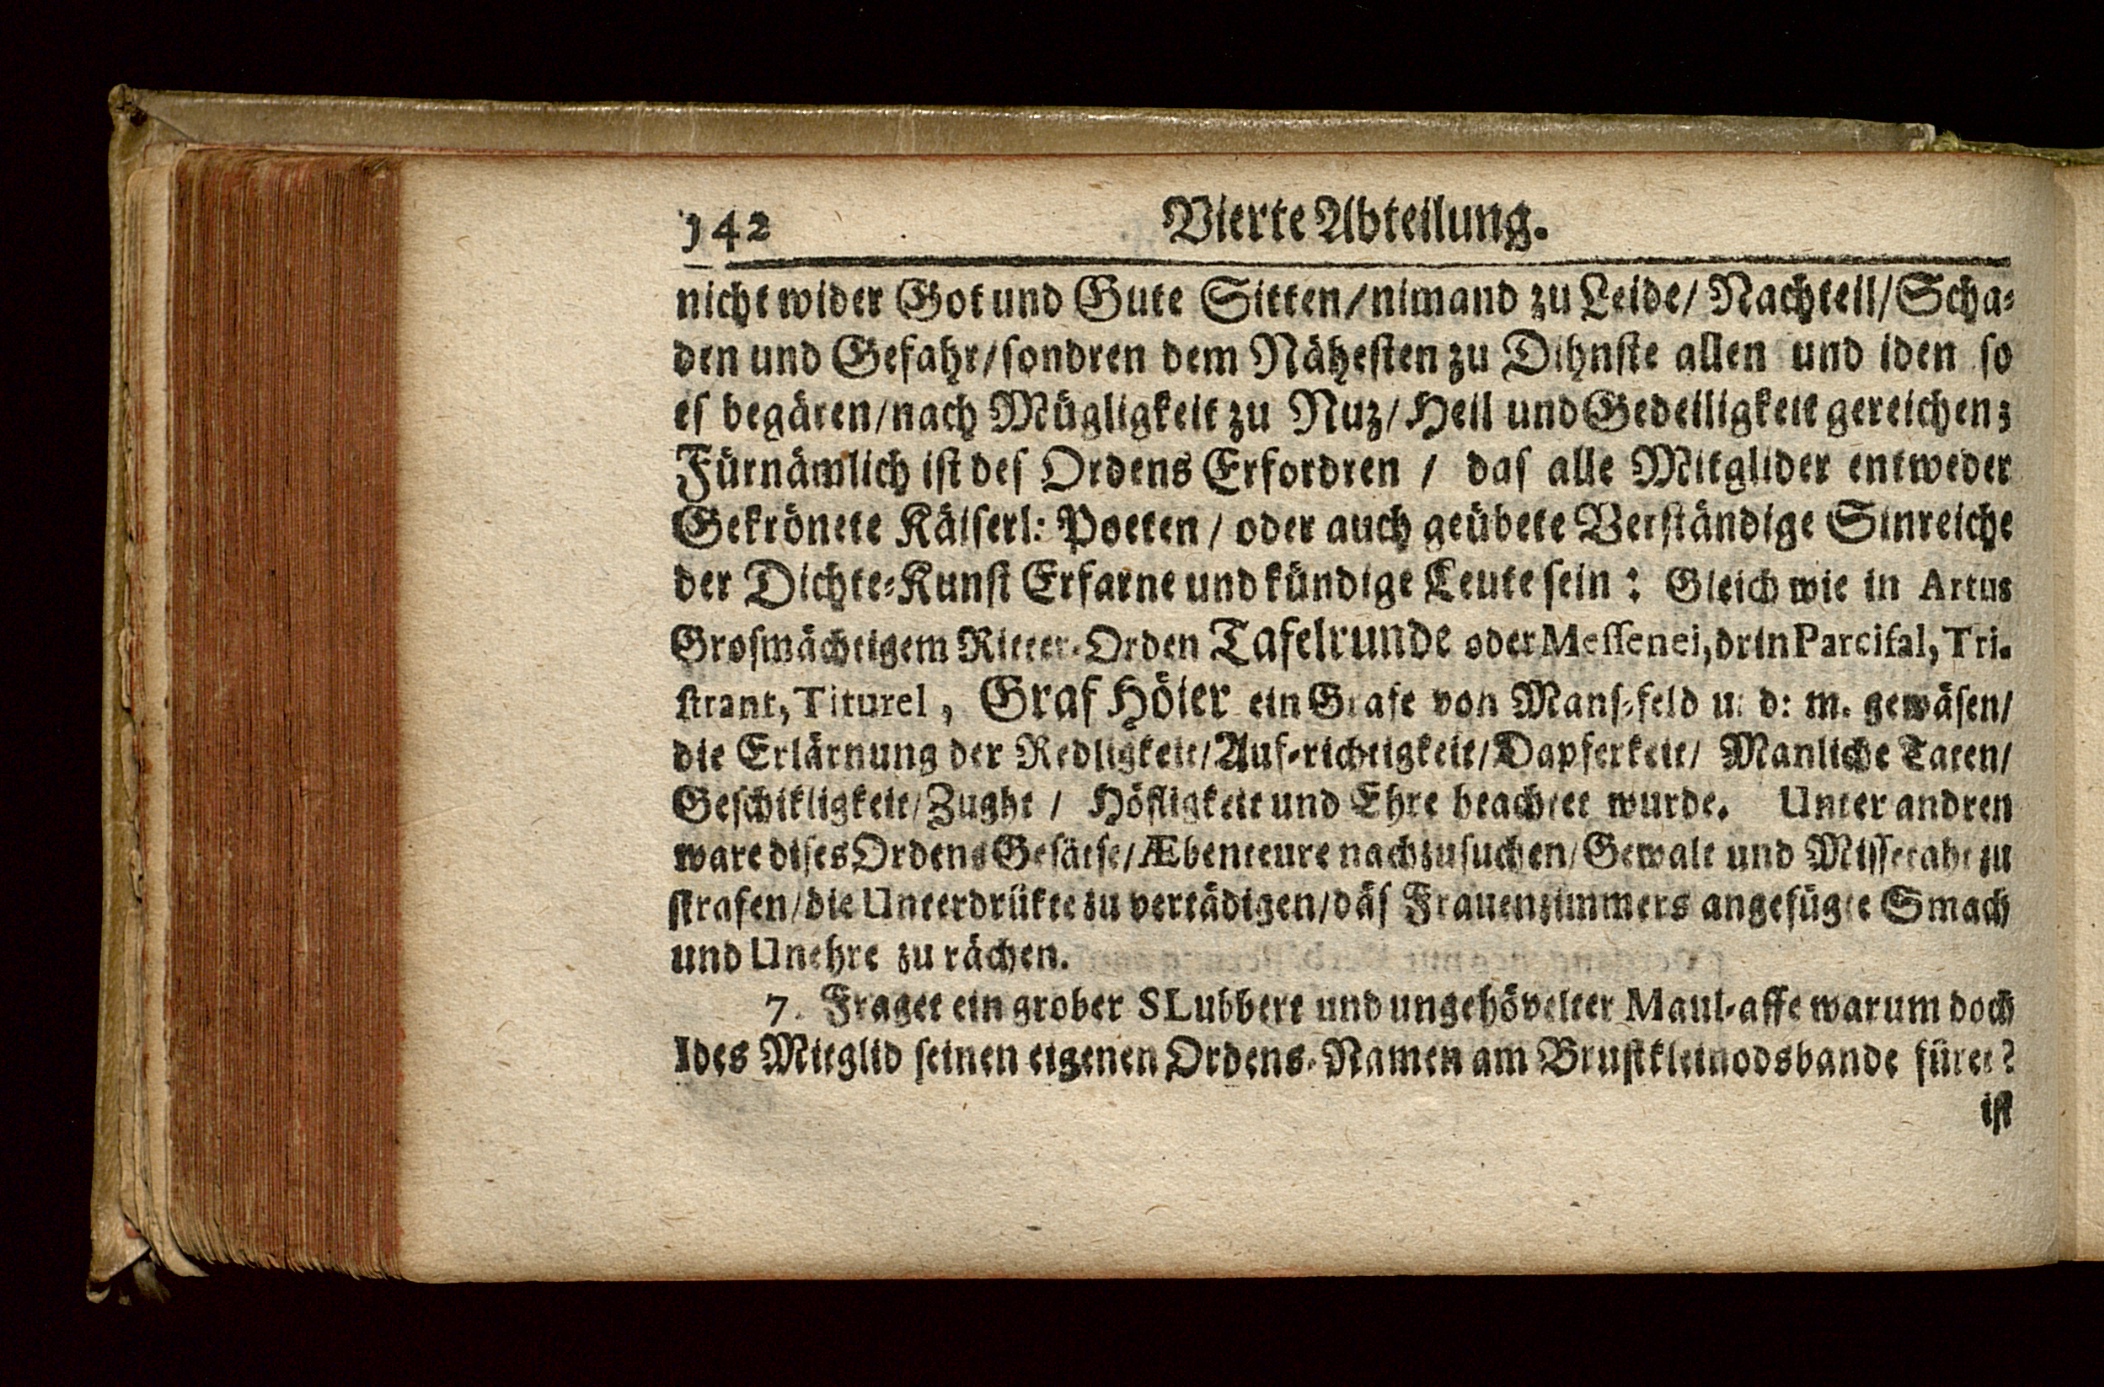 142 Vierte Abteilung.
nicht wider Got und Gute Sitten/nimand zu Leide/ Nachteil/Scha-
den und Gefahr/sondren dem Nähesten zu Dihnste allen und iden so
es begären/nach Mügligkeit zu Nuz/Heil und Gedeiligkeit gereichen;
Fürnämlich ist des Ordens Erfordren / das alle Mitglider entweder
Gekrönete Käiserl: Poeten / oder auch geübete Verständige Sinreiche
der Dichte-Kunst Erfarne und kündige Leute sein: Gleich wie in Artus
Grosmächtigem Ritter-Orden Tafelrunde oder Messenei, drin Parcifal, Tri-
strant, Titurel, Graf Höier ein Grafe von Mans-feld u: d: m. gewäsen/
die Erlärnung der Redligkeit/Auf-richtigkeit/Dapferkeit/ Manliche Taten/
Geschikligkeit/Zught / Höfligkeit und Ehre beachtet wurde. Unter andren
ware dises Ordens Gesätse/Æbenteure nachzusuchen/Gewalt und Missetaht zu
strafen/die Unterdrükte zu vertädigen/däs Frauenzimmers angefügte Smach
und Unehre zu rächen.
7. Fraget ein grober SLubbert und ungehövelter Maul-affe warum doch
Ides Mitglid seinen eigenen Ordens-Namen am Brustkleinodsbande füret?
ist